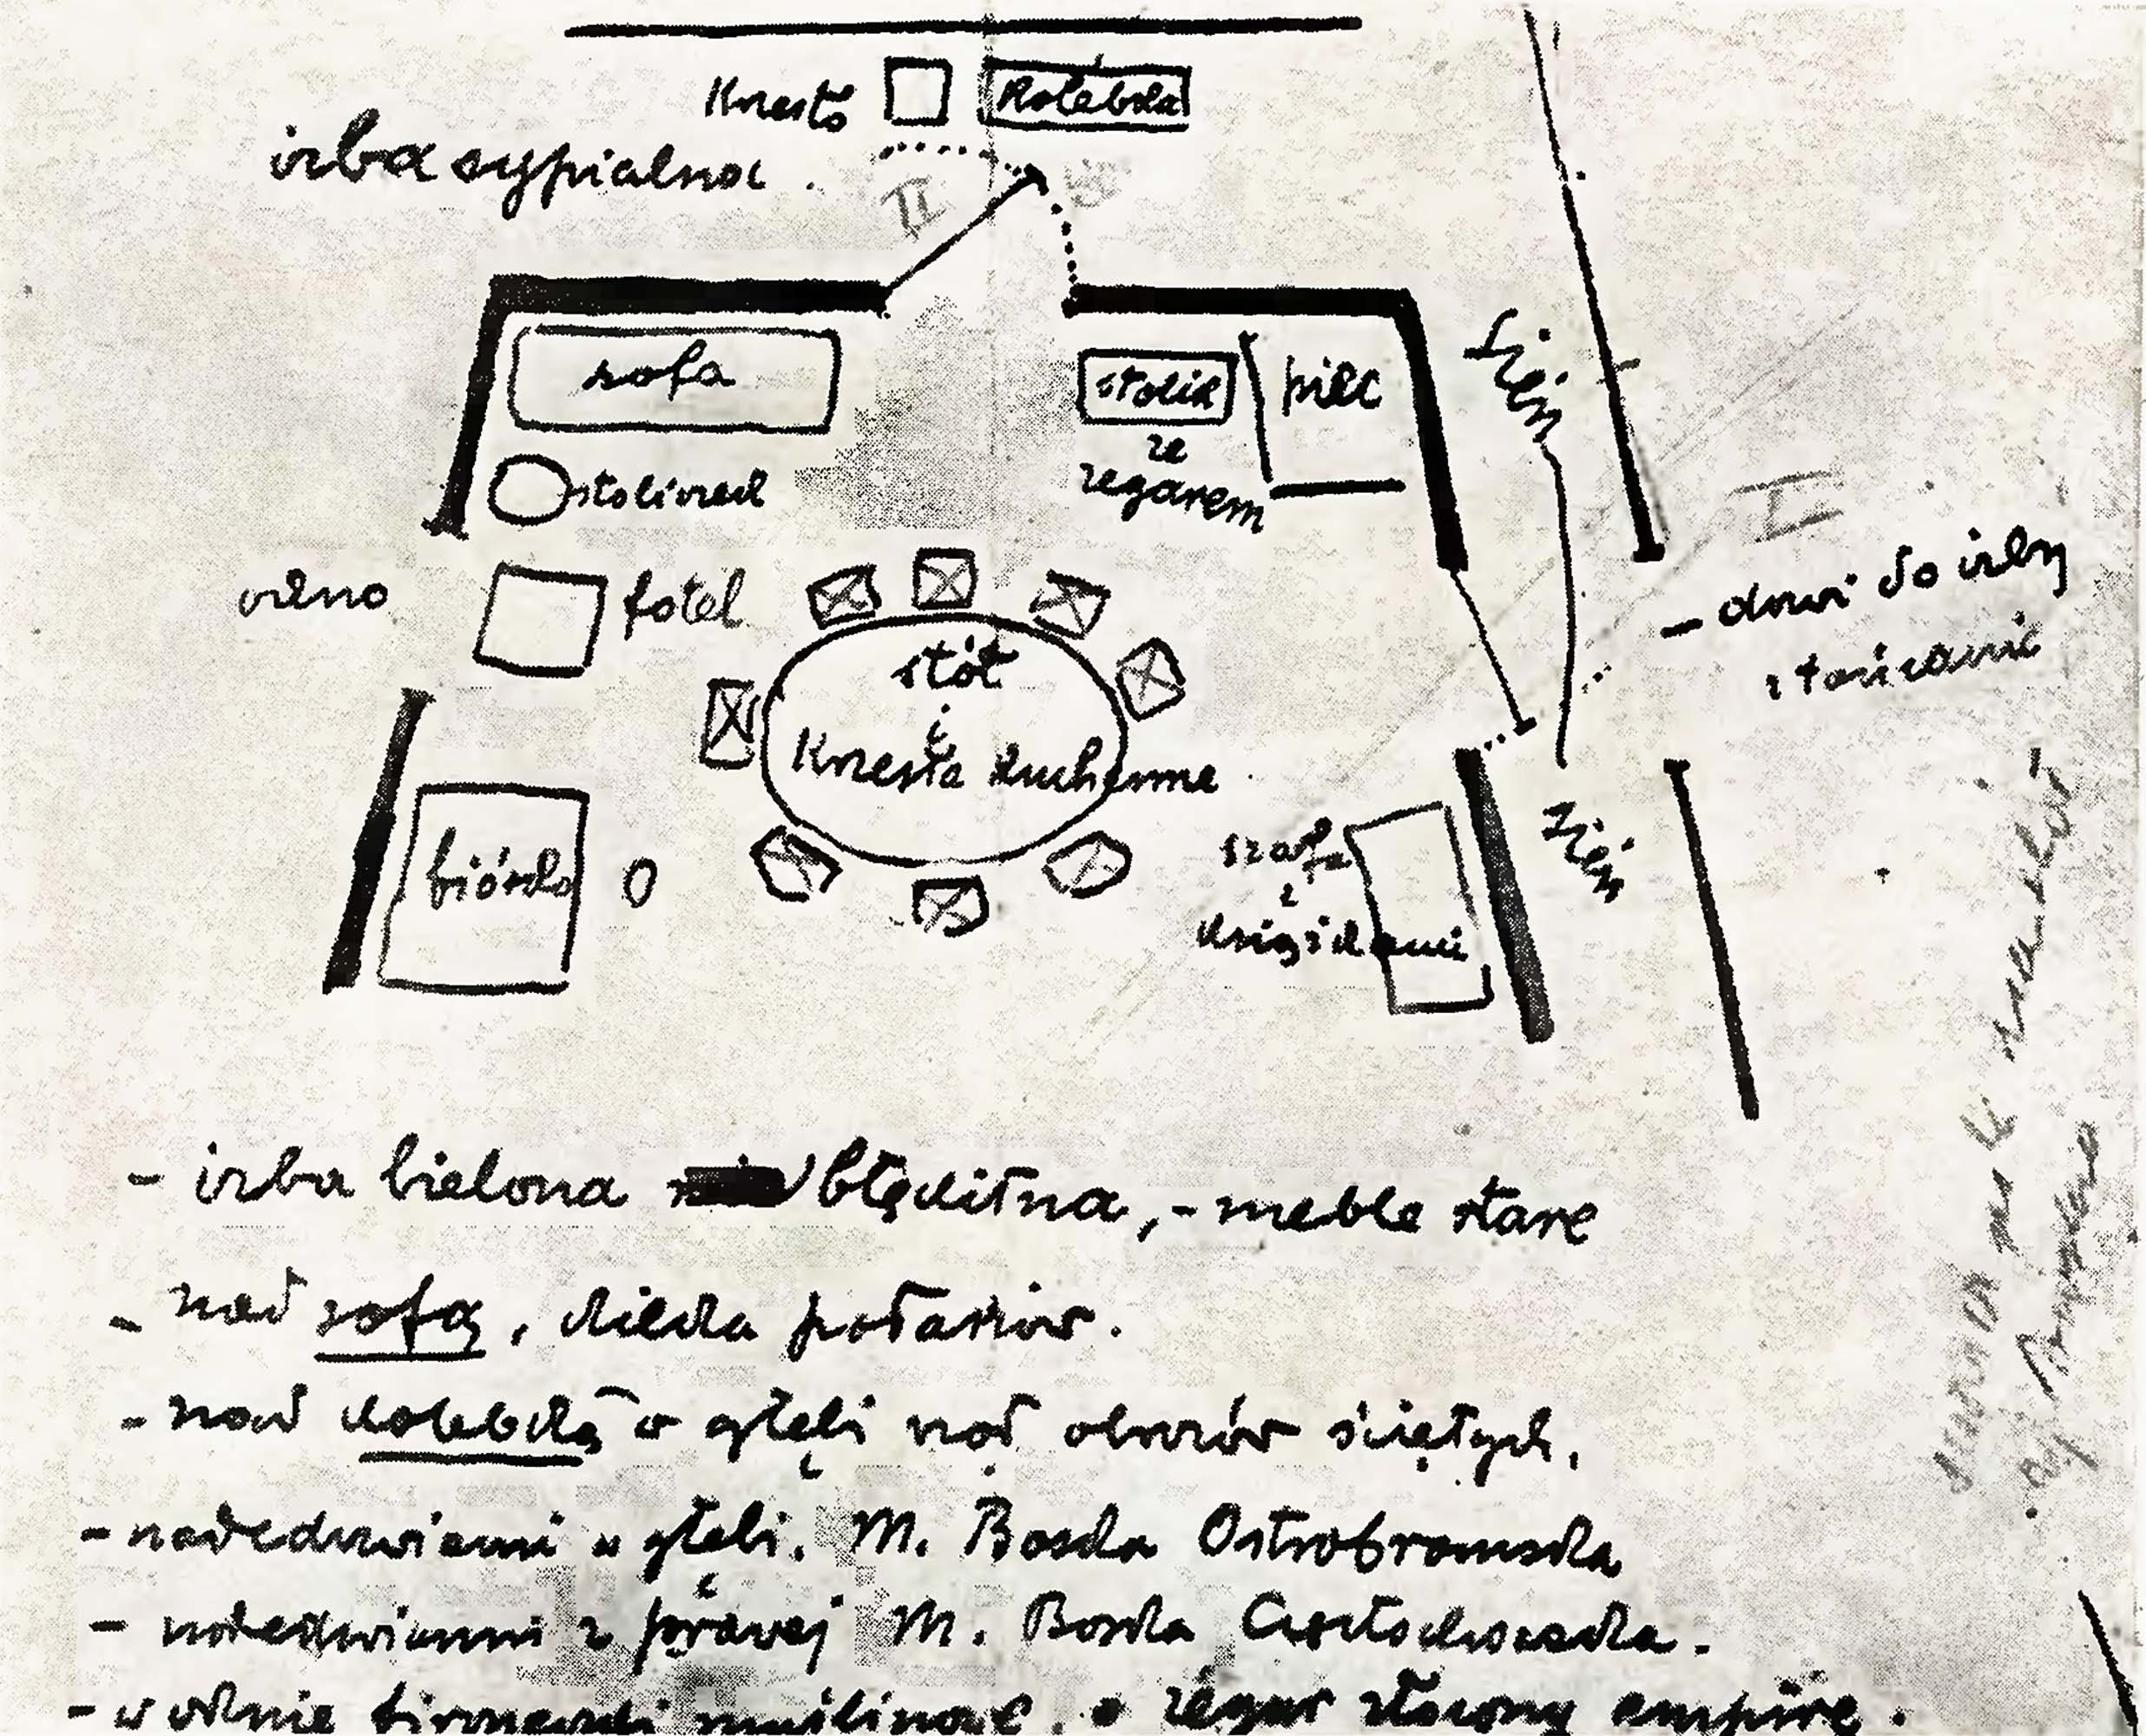 Krzesło
Kolebka
izba sypialna.
II
sofa
stolik
ze
zegarem
piec
sień
stoliczek
I
okno
fotel
– drzwi do izby
z tańcami
stół
i
Krzesła kuchenne
biórko
szafa
z
książkami
sień
- izba bielona błękitna, - meble stare
- nad sofą, kilka portretów.
- nad kolebką w głębi rząd obrazów świętych.
- nadedrzwiami w głębi. M. Boska Ostrobramska
- nadedrzwiami z prawej M. Boska Częstochowska.
- w oknie firaneczki muślinowe. • zegar złocony empire.